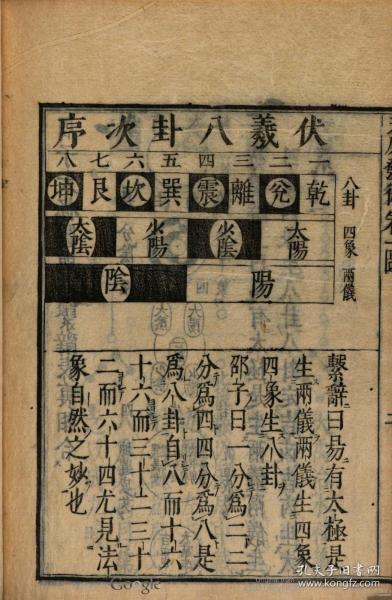 伏羲八卦次序
一二三四五六七八
乾兌離震巽坎艮坤
太陽少陰少陽太陰
陽陰
八卦 四象 兩儀
繫辭曰易有太極是
生兩儀兩儀生四象
四象生八卦
邵子曰一分爲二二
分爲四四分爲八是
爲八卦自八而十六
十六而三十二三十
二而六十四尤見法
象自然之妙也
Google
孔夫子旧书网